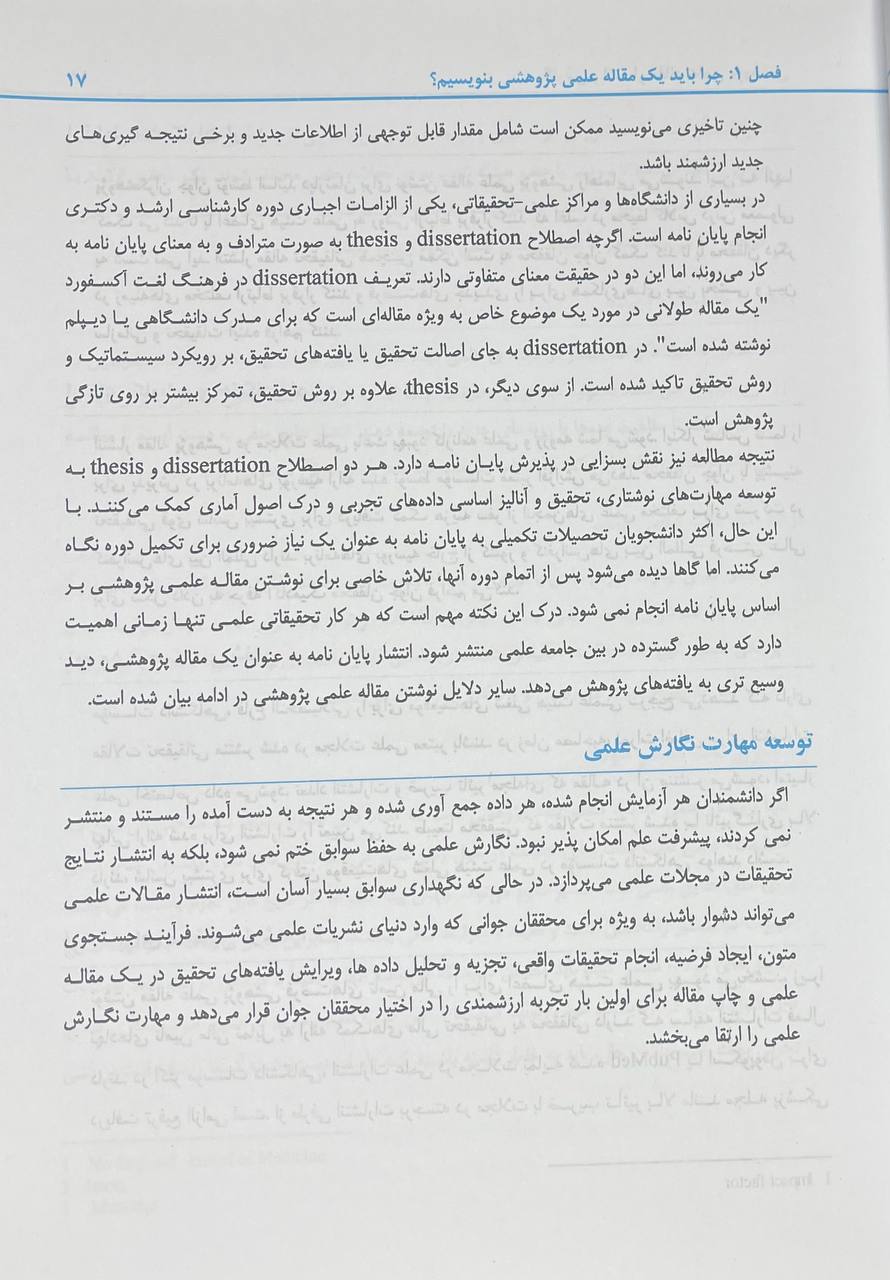 فصل ۱: چرا باید یک مقاله علمی پژوهشی بنویسیم؟ ۱۷
چنین تاخیری می‌نویسید ممکن است شامل مقدار قابل توجهی از اطلاعات جدید و برخی نتیجه گیری‌های
جدید ارزشمند باشد.
در بسیاری از دانشگاه‌ها و مراکز علمی-تحقیقاتی، یکی از الزامات اجباری دوره کارشناسی ارشد و دکتری
انجام پایان نامه است. اگرچه اصطلاح dissertation و thesis به صورت مترادف و به معنای پایان نامه به
کار می‌روند، اما این دو در حقیقت معنای متفاوتی دارند. تعریف dissertation در فرهنگ لغت آکسفورد
"یک مقاله طولانی در مورد یک موضوع خاص به ویژه مقاله‌ای است که برای مدرک دانشگاهی یا دیپلم
نوشته شده است". در dissertation به جای اصالت تحقیق یا یافته‌های تحقیق، بر رویکرد سیستماتیک و
روش تحقیق تاکید شده است. از سوی دیگر، در thesis، علاوه بر روش تحقیق، تمرکز بیشتر بر روی تازگی
پژوهش است.
نتیجه مطالعه نیز نقش بسزایی در پذیرش پایان نامه دارد. هر دو اصطلاح dissertation و thesis به
توسعه مهارت‌های نوشتاری، تحقیق و آنالیز اساسی داده‌های تجربی و درک اصول آماری کمک می‌کنند. با
این حال، اکثر دانشجویان تحصیلات تکمیلی به پایان نامه به عنوان یک نیاز ضروری برای تکمیل دوره نگاه
می‌کنند. اما گاها دیده می‌شود پس از اتمام دوره آنها، تلاش خاصی برای نوشتن مقاله علمی پژوهشی بر
اساس پایان نامه انجام نمی شود. درک این نکته مهم است که هر کار تحقیقاتی علمی تنها زمانی اهمیت
دارد که به طور گسترده در بین جامعه علمی منتشر شود. انتشار پایان نامه به عنوان یک مقاله پژوهشی، دید
وسیع تری به یافته‌های پژوهش می‌دهد. سایر دلایل نوشتن مقاله علمی پژوهشی در ادامه بیان شده است.
توسعه مهارت نگارش علمی
اگر دانشمندان هر آزمایش انجام شده، هر داده جمع آوری شده و هر نتیجه به دست آمده را مستند و منتشر
نمی کردند، پیشرفت علم امکان پذیر نبود. نگارش علمی به حفظ سوابق ختم نمی شود، بلکه به انتشار نتایج
تحقیقات در مجلات علمی می‌پردازد. در حالی که نگهداری سوابق بسیار آسان است، انتشار مقالات علمی
می‌تواند دشوار باشد، به ویژه برای محققان جوانی که وارد دنیای نشریات علمی می‌شوند. فرآیند جستجوی
متون، ایجاد فرضیه، انجام تحقیقات واقعی، تجزیه و تحلیل داده ها، ویرایش یافته‌های تحقیق در یک مقاله
علمی و چاپ مقاله برای اولین بار تجربه ارزشمندی را در اختیار محققان جوان قرار می‌دهد و مهارت نگارش
علمی را ارتقا می‌بخشد.